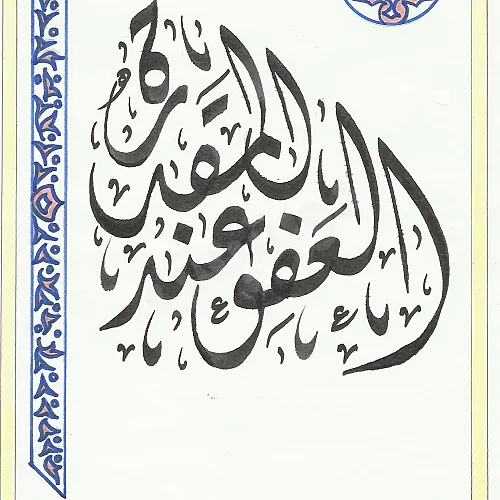 العفو عند المقدرة